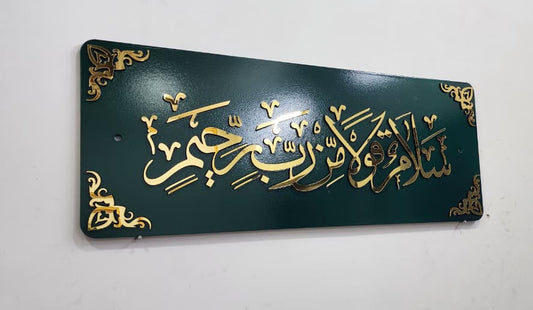 سَلَامٌ قَوْلًا مِّنْ رَّبٍّ رَّحِيمٍ